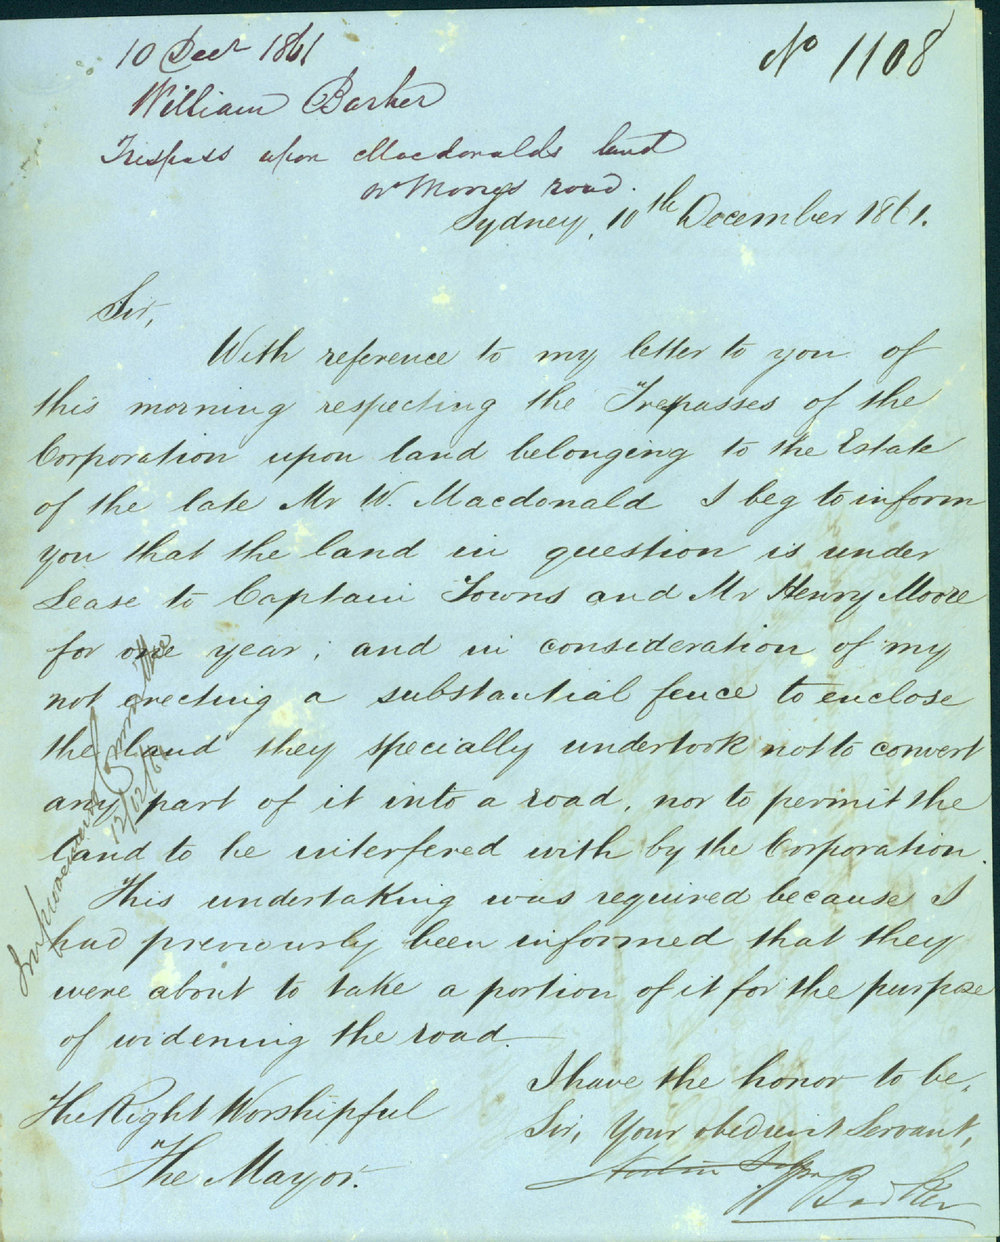 10 Decr 1861
No 1108
William Barker
Trespass upon Macdonalds land
road.
Sydney, 10th December 1861.
Sir,
With reference to my letter to you of
this morning respecting the Trespasses of the
Corporation upon land belonging to the Estate
of the late Mr W. Macdonald I beg to inform
you that the land in question is under
Lease to Captain Towns and Mr Henry Moore
for one year, and in consideration of my
not erecting a substantial fence to enclose
the land they specially undertook not to convert
any part of it into a road, nor to permit the
land to be interfered with by the Corporation.
This undertaking was required because I
had previously been informed that they
were about to take a portion of it for the purpose
of widening the road.
I have the honor to be,
Sir, Your obedient Servant,
Wm Barker
The Right Worshipful
The Mayor.
Improvement Committee
12/12/61